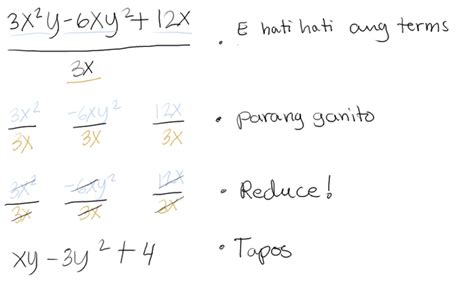 3x²y-6xy²+12x
3x
• E hati hati ang terms
3x² -6xy² 12x
3x 3x 3x
• parang ganito
3x² -6xy² 12x
3x 3x 3x
• Reduce!
xy - 3y² + 4
• Tapos